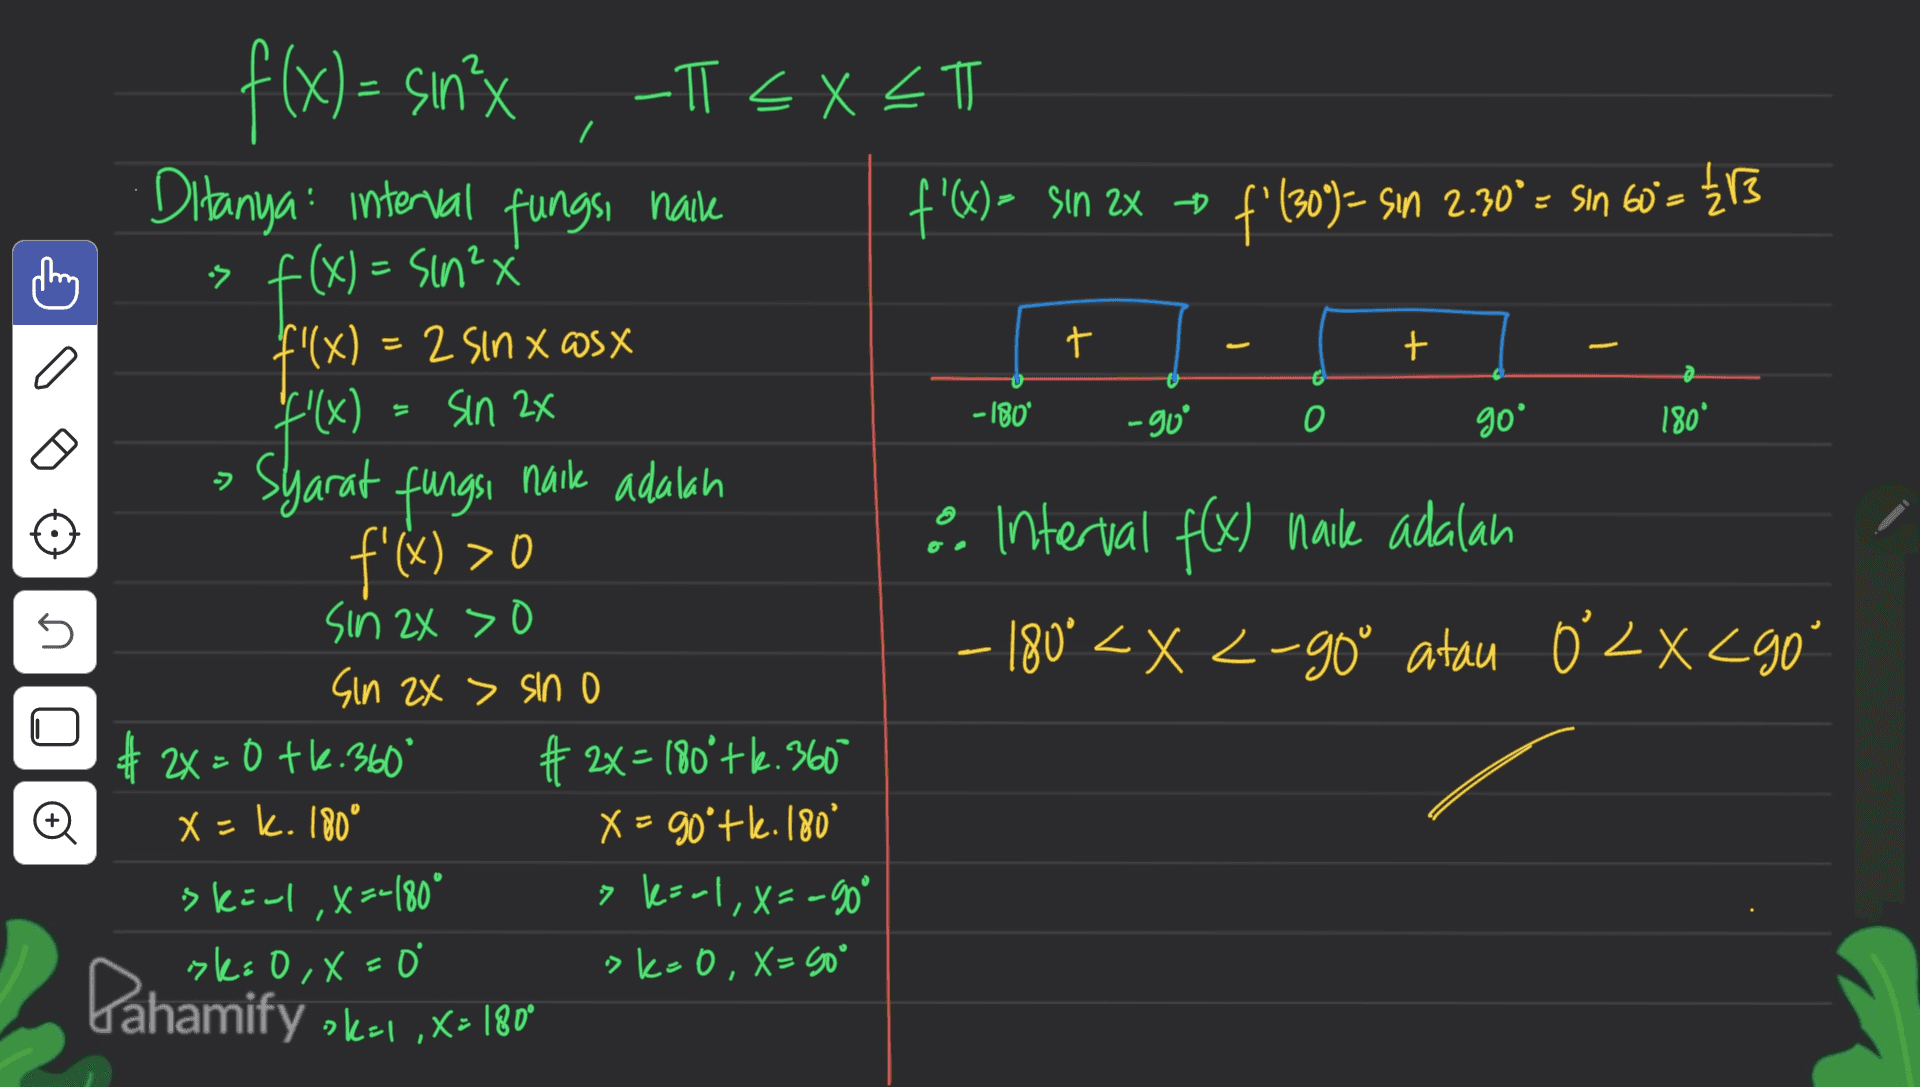 f(x) = sin²x , -π ≤ x ≤ π
Ditanya: interval fungsi naik
> f(x) = sin²x
f'(x) = 2 sin x cos x
f'(x) = sin 2x
> Syarat fungsi naik adalah
f'(x) > 0
sin 2x > 0
sin 2x > sin 0
# 2x = 0 + k.360°
x = k. 180°
> k = -1, x = -180°
> k = 0, x = 0°
> k = 1, x = 180°
# 2x = 180° + k. 360°
x = 90° + k. 180°
> k = -1, x = -90°
> k = 0, x = 90°
f'(x) = sin 2x → f'(30°) = sin 2.30° = sin 60° = ½√3
+ - + -
-180° -90° 0 90° 180°
∴ Interval f(x) naik adalah
-180° < x < -90° atau 0° < x < 90°
Pahamify